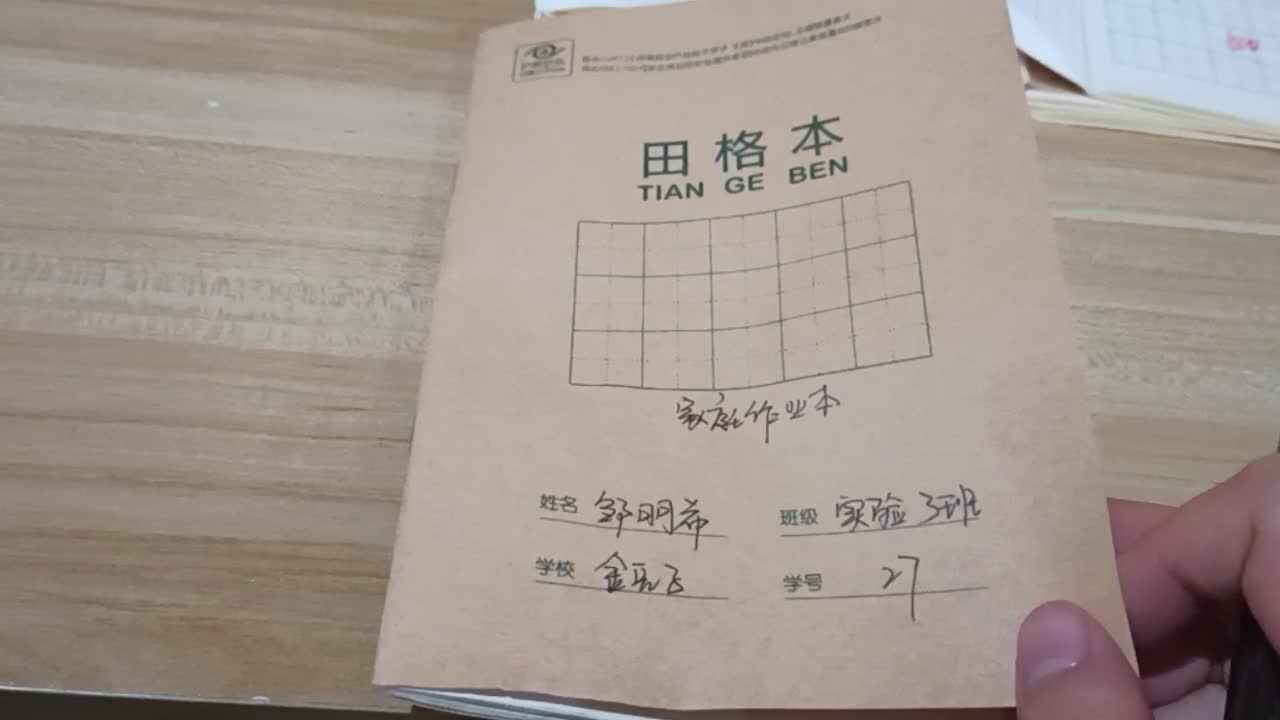 田格本
TIAN GE BEN
家庭作业本
姓名 舒明希 班级 实验3班
学校 金飞 学号 27